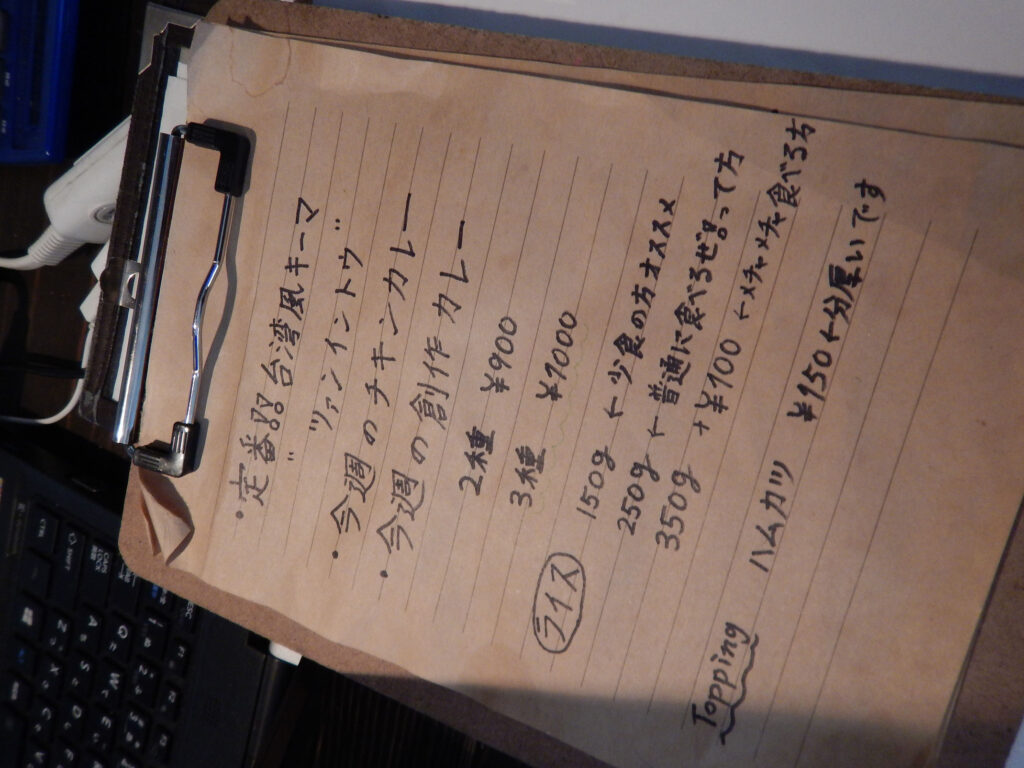 ・定番!!台湾風キーマ
"ツァンイントウ"
・今週のチキンカレー
・今週の創作カレー
2種 ¥900
3種 ¥1000
ライス 150g ← 少食の方オススメ
250g ← 普通に食べるぜ!!って方
350g +¥100 ←メチャメチャ食べる方
Topping
ハムカツ ¥150←分厚いです